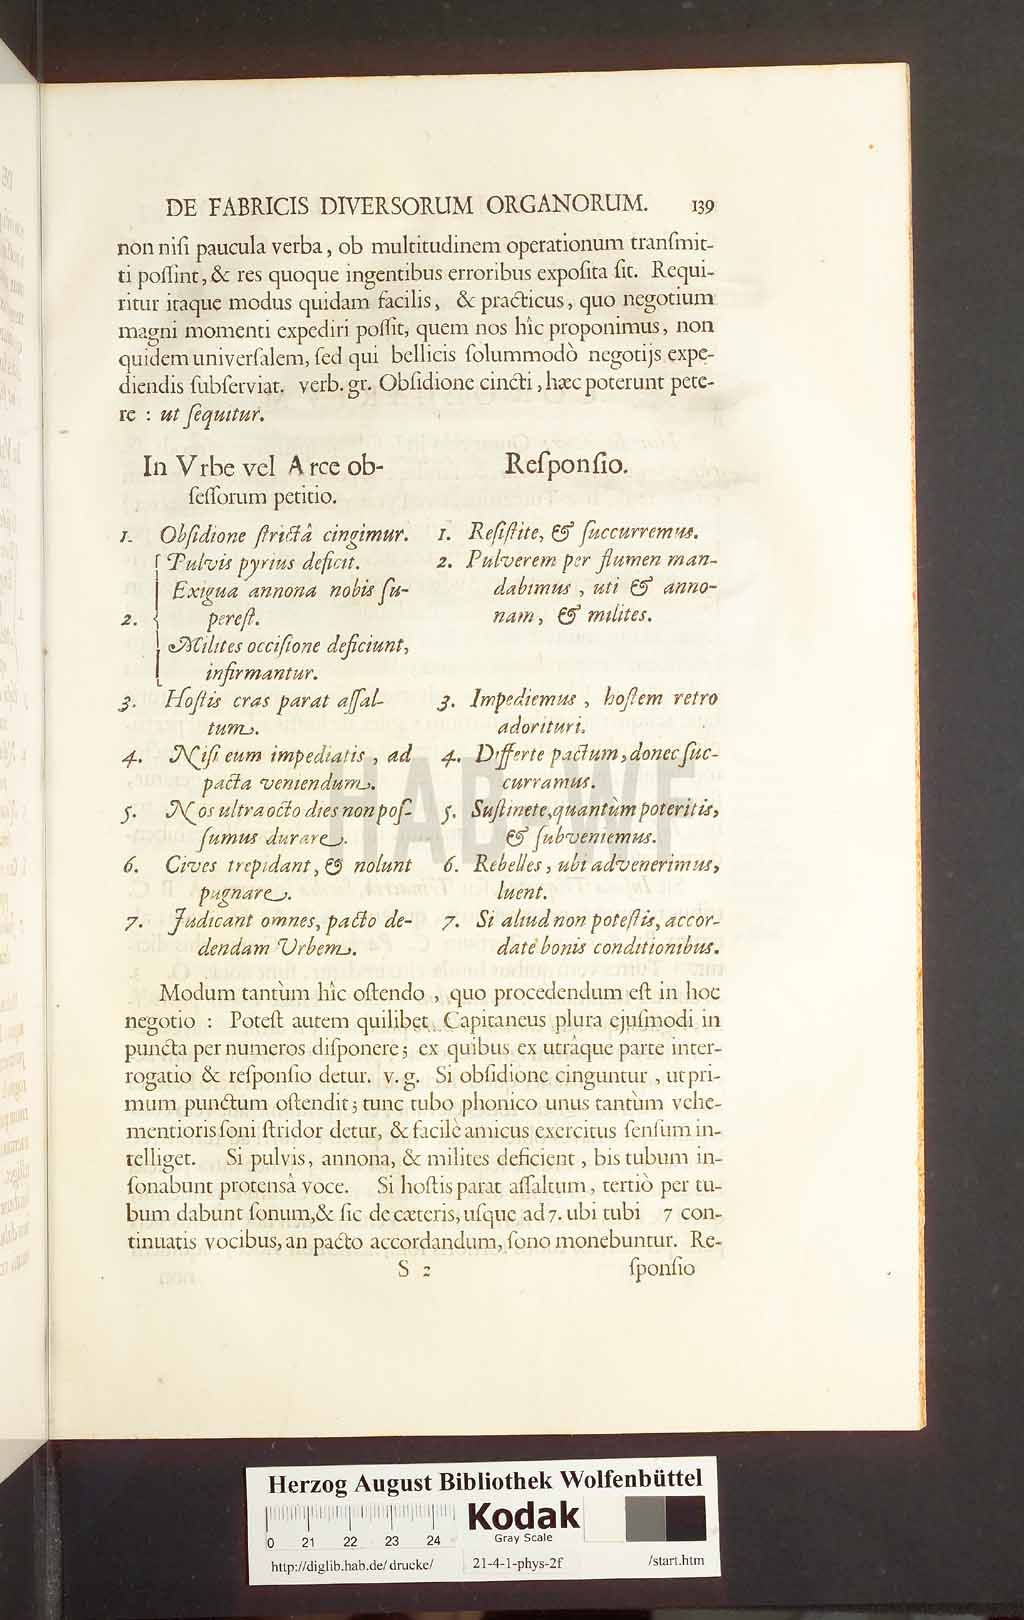 DE FABRICIS DIVERSORUM ORGANORUM. 139
non niſi paucula verba, ob multitudinem operationum tranſmit-
ti poſſint, & res quoque ingentibus erroribus expoſita ſit. Requi-
ritur itaque modus quidam facilis, & practicus, quo negotium
magni momenti expediri poſſit, quem nos hîc proponimus, non
quidem univerſalem, ſed qui bellicis ſolummodò negotijs expe-
diendis ſubſerviat. verb. gr. Obſidione cincti, hæc poterunt pete-
re : ut ſequitur.
In Vrbe vel Arce ob-
ſeſſorum petitio.
1. Obſidione ſtrictâ cingimur.
Pulvis pyrius deficit.
Exigua annona nobis ſu-
2. pereſt.
Milites occiſione deficiunt,
infirmantur.
3. Hoſtis cras parat aſſal-
tum.
4. Niſi eum impediatis, ad
pacta veniendum.
5. Nos ultra octo dies non poſ-
ſumus durare.
6. Cives trepidant, & nolunt
pugnare.
7. Judicant omnes, pacto de-
dendam Urbem.
Reſponſio.
1. Reſiſtite, & ſuccurremus.
2. Pulverem per flumen man-
dabimus, uti & anno-
nam, & milites.
3. Impediemus, hoſtem retro
adorituri.
4. Differte pactum, donec ſuc-
curramus.
5. Suſtinete, quantùm poteritis,
& ſubveniemus.
6. Rebelles, ubi advenerimus,
luent.
7. Si aliud non poteſtis, accor-
date bonis conditionibus.
Modum tantùm hîc oſtendo, quo procedendum eſt in hoc
negotio : Poteſt autem quilibet Capitaneus plura ejuſmodi in
puncta per numeros diſponere; ex quibus ex utrâque parte inter-
rogatio & reſponſio detur. v. g. Si obſidione cinguntur, ut pri-
mum punctum oſtendit; tunc tubo phonico unus tantùm vehe-
mentioris ſoni ſtridor detur, & facilè amicus exercitus ſenſum in-
telliget. Si pulvis, annona, & milites deficient, bis tubum in-
ſonabunt protensâ voce. Si hoſtis parat aſſaltum, tertiò per tu-
bum dabunt ſonum, & ſic de cæteris, uſque ad 7. ubi tubi 7 con-
tinuatis vocibus, an pacto accordandum, ſono monebuntur. Re-
S 2 ſponſio
HAB WF
Herzog August Bibliothek Wolfenbüttel
0 21 22 23 24
Kodak
Gray Scale
http://diglib.hab.de/drucke/ 21-4-1-phys-2f /start.htm